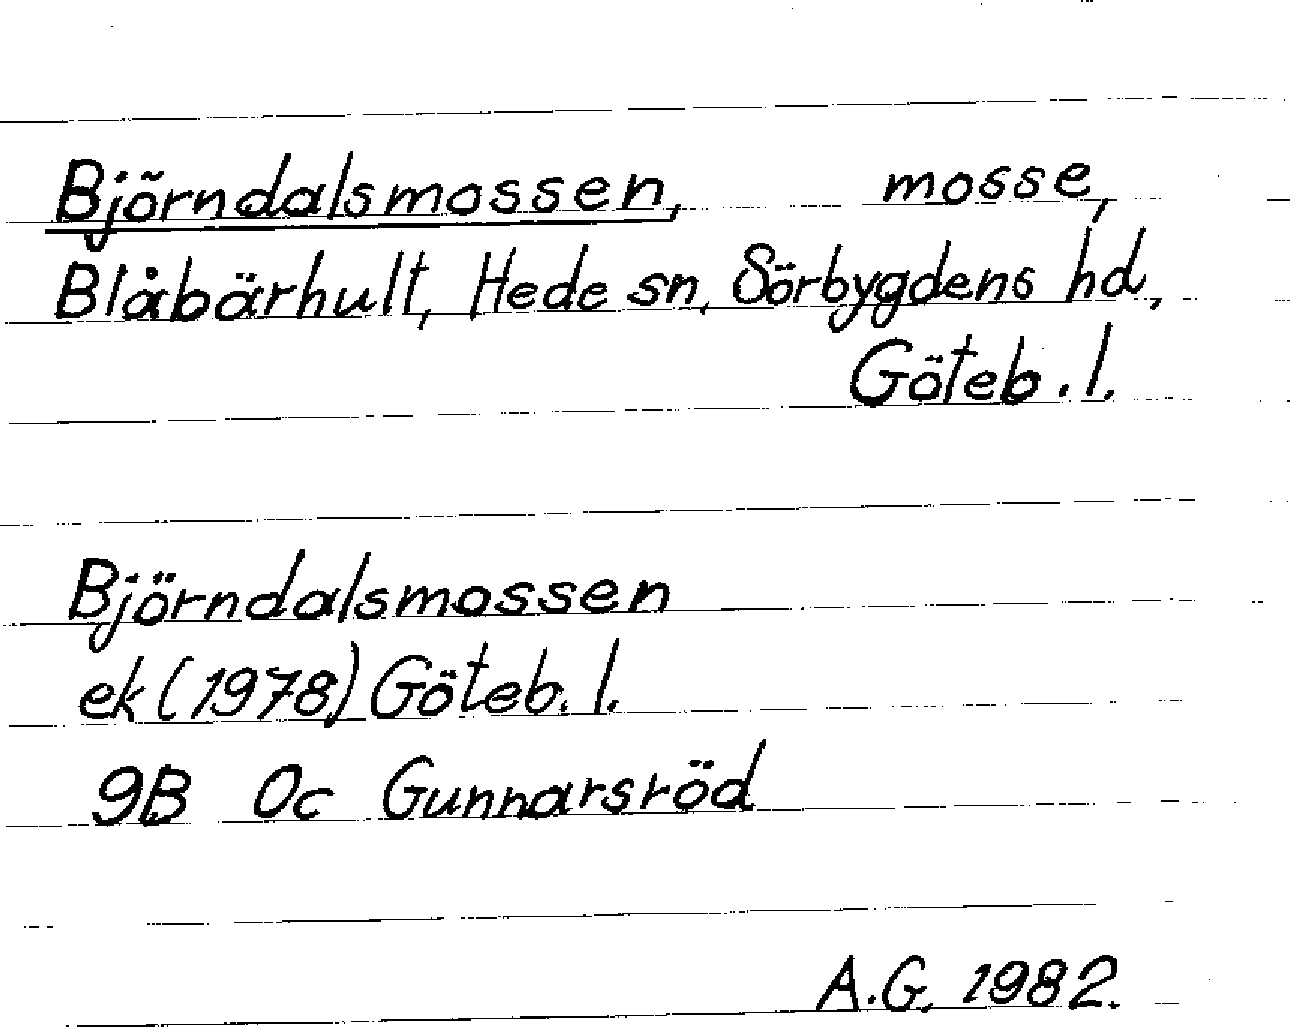 Björndalsmossen, mosse,
Blåbärhult, Hede sn, Sörbygdens hd,
Göteb. l.
Björndalsmossen
ek (1978) Göteb. l.
9B 0c Gunnarsröd
A.G. 1982.